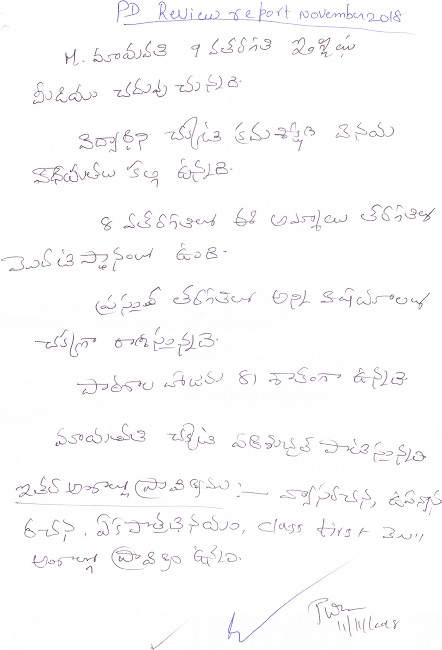 PD Review report november 2018
M. మాయావతి 9 వతరగతి ఇంగ్లీషు
మీడియం చదువు చున్నది.
విద్యార్థిని చక్కటి క్రమశిక్షణ వినయ
విధేయతలు కల్గి ఉన్నది.
8 వతరగతిలో ఈ అమ్మాయి తరగతిలో
మొదటి స్థానంలో ఉంది.
ప్రస్తుత తరగతిలో అన్ని విషయాలలో
చక్కగా రాణిస్తున్నది.
పాఠశాల హాజరు 81 శాతంగా ఉన్నది
మాయావతి చక్కటి పరిశుభ్రత పాటిస్తున్నది
ఇతర అంశాల్లో ప్రావిణ్యము :- వ్యాసరచన, ఉపన్యాస
రచన, ఏకపాత్రాభినయం, class first మొ॥
అంశాల్లో ప్రావిణ్యం ఉన్నది.
11/11/2018